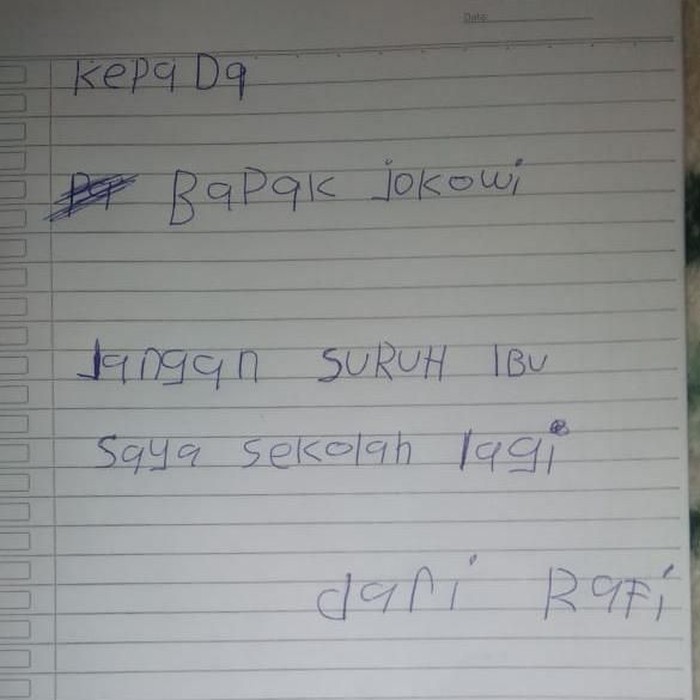 Date:
KepaDa
BaPak jokowi
Jangan SURUH IBU
Saya sekolah lagi
dari RaFi